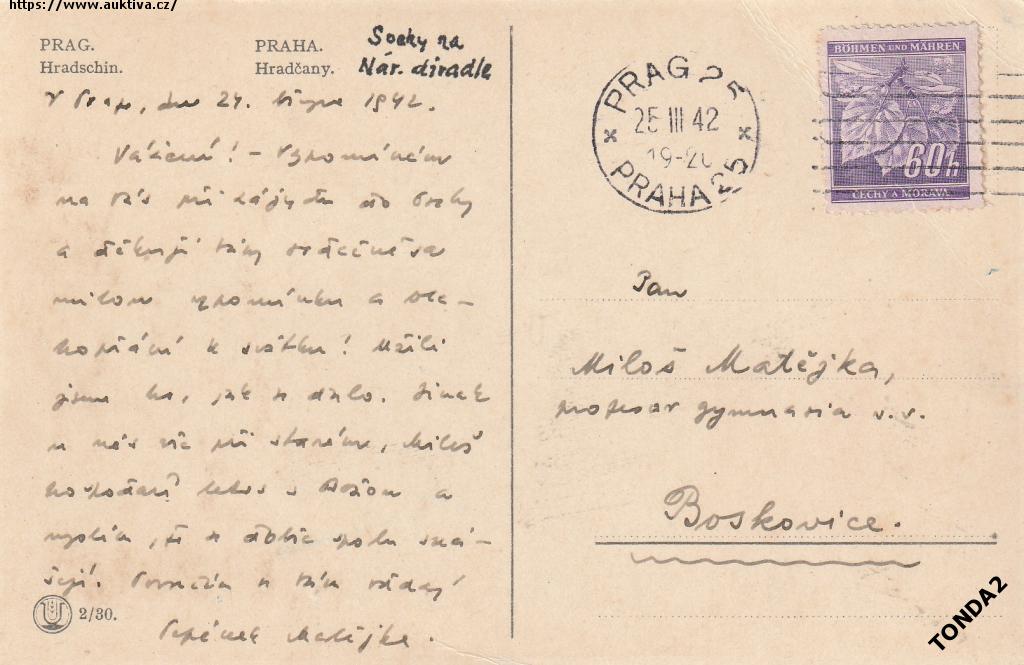 https://www.auktiva.cz/
PRAG.
Hradschin.
PRAHA.
Hradčany.
Sochy na
Nár. divadle
V Praze, dne 24. března 1942.
Vážení! – Vzpomínám
na Vás při zájezdu do
a děkuji Vám srdečně za
milou vzpomínku a bla-
hopřání k svátku! Užili
jsme ho, jak se dalo. Jinak
u nás vše při starém, Miloš
hospodaří letos s
a
myslím, že se dobře spolu sná-
šejí. Poroučím se Vám oddaný
Matějka.
2/30.
PRAG 25
25 III 42
19-20
PRAHA 25
BÖHMEN UND MÄHREN
60h
ČECHY A MORAVA
Pan
Miloš Matějka,
profesor gymnasia v.v.
Boskovice.
TONDA2